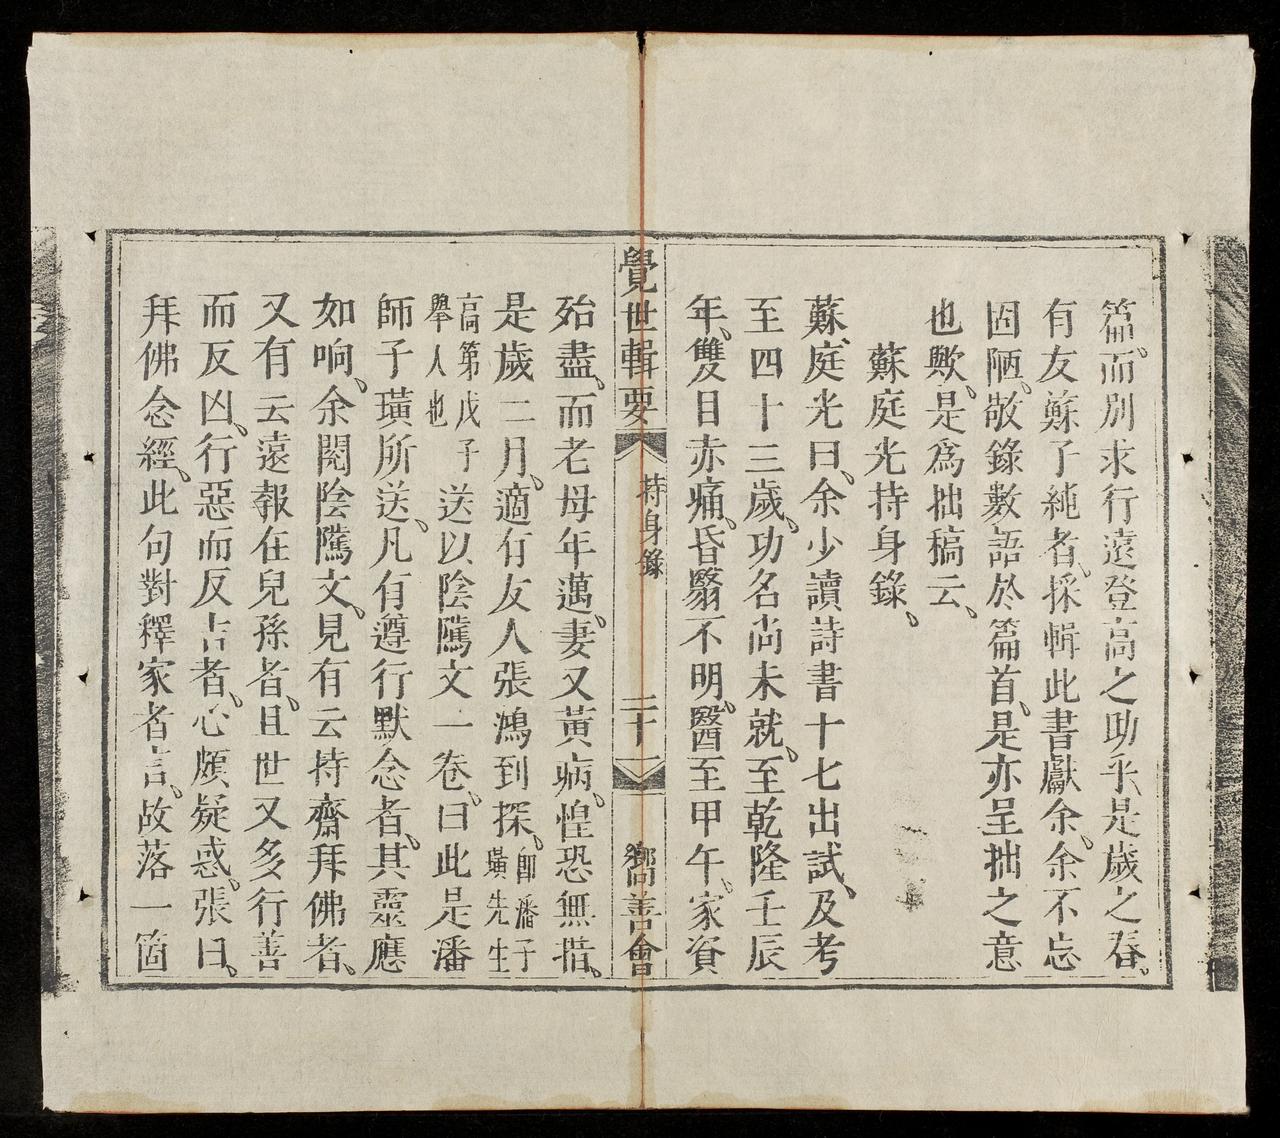 篇、而別求行遠登高之功乎、是歲之春、
有友蘇子純者、採輯此書獻余、余不忘
固陋、敬錄數語於篇首、是亦呈拙之意
也歟、是為拙稿云、
蘇庭光持身錄、
蘇庭光曰、余少讀詩書十七出試、及考
至四十三歲、功名尚未就、至乾隆壬辰
年、雙目赤痛、昏翳不明、醫至甲午、家資
覺世輯要
持身錄
二十一
嚮善會
殆盡、而老母年邁、妻又黃病、惶恐無措、
是歲二月、適有友人張鴻到探、即潘子璜先生
高第戊子舉人也送以陰隲文一卷、曰此是潘
師子璜所送、凡有遵行默念者、其靈應
如响、余閱陰隲文、見有云持齋拜佛者、
又有云遠報在兒孫者、且世又多行善
而反凶、行惡而反吉者、心頗疑惑、張曰、
拜佛念經、此句對釋家者言、故落一箇